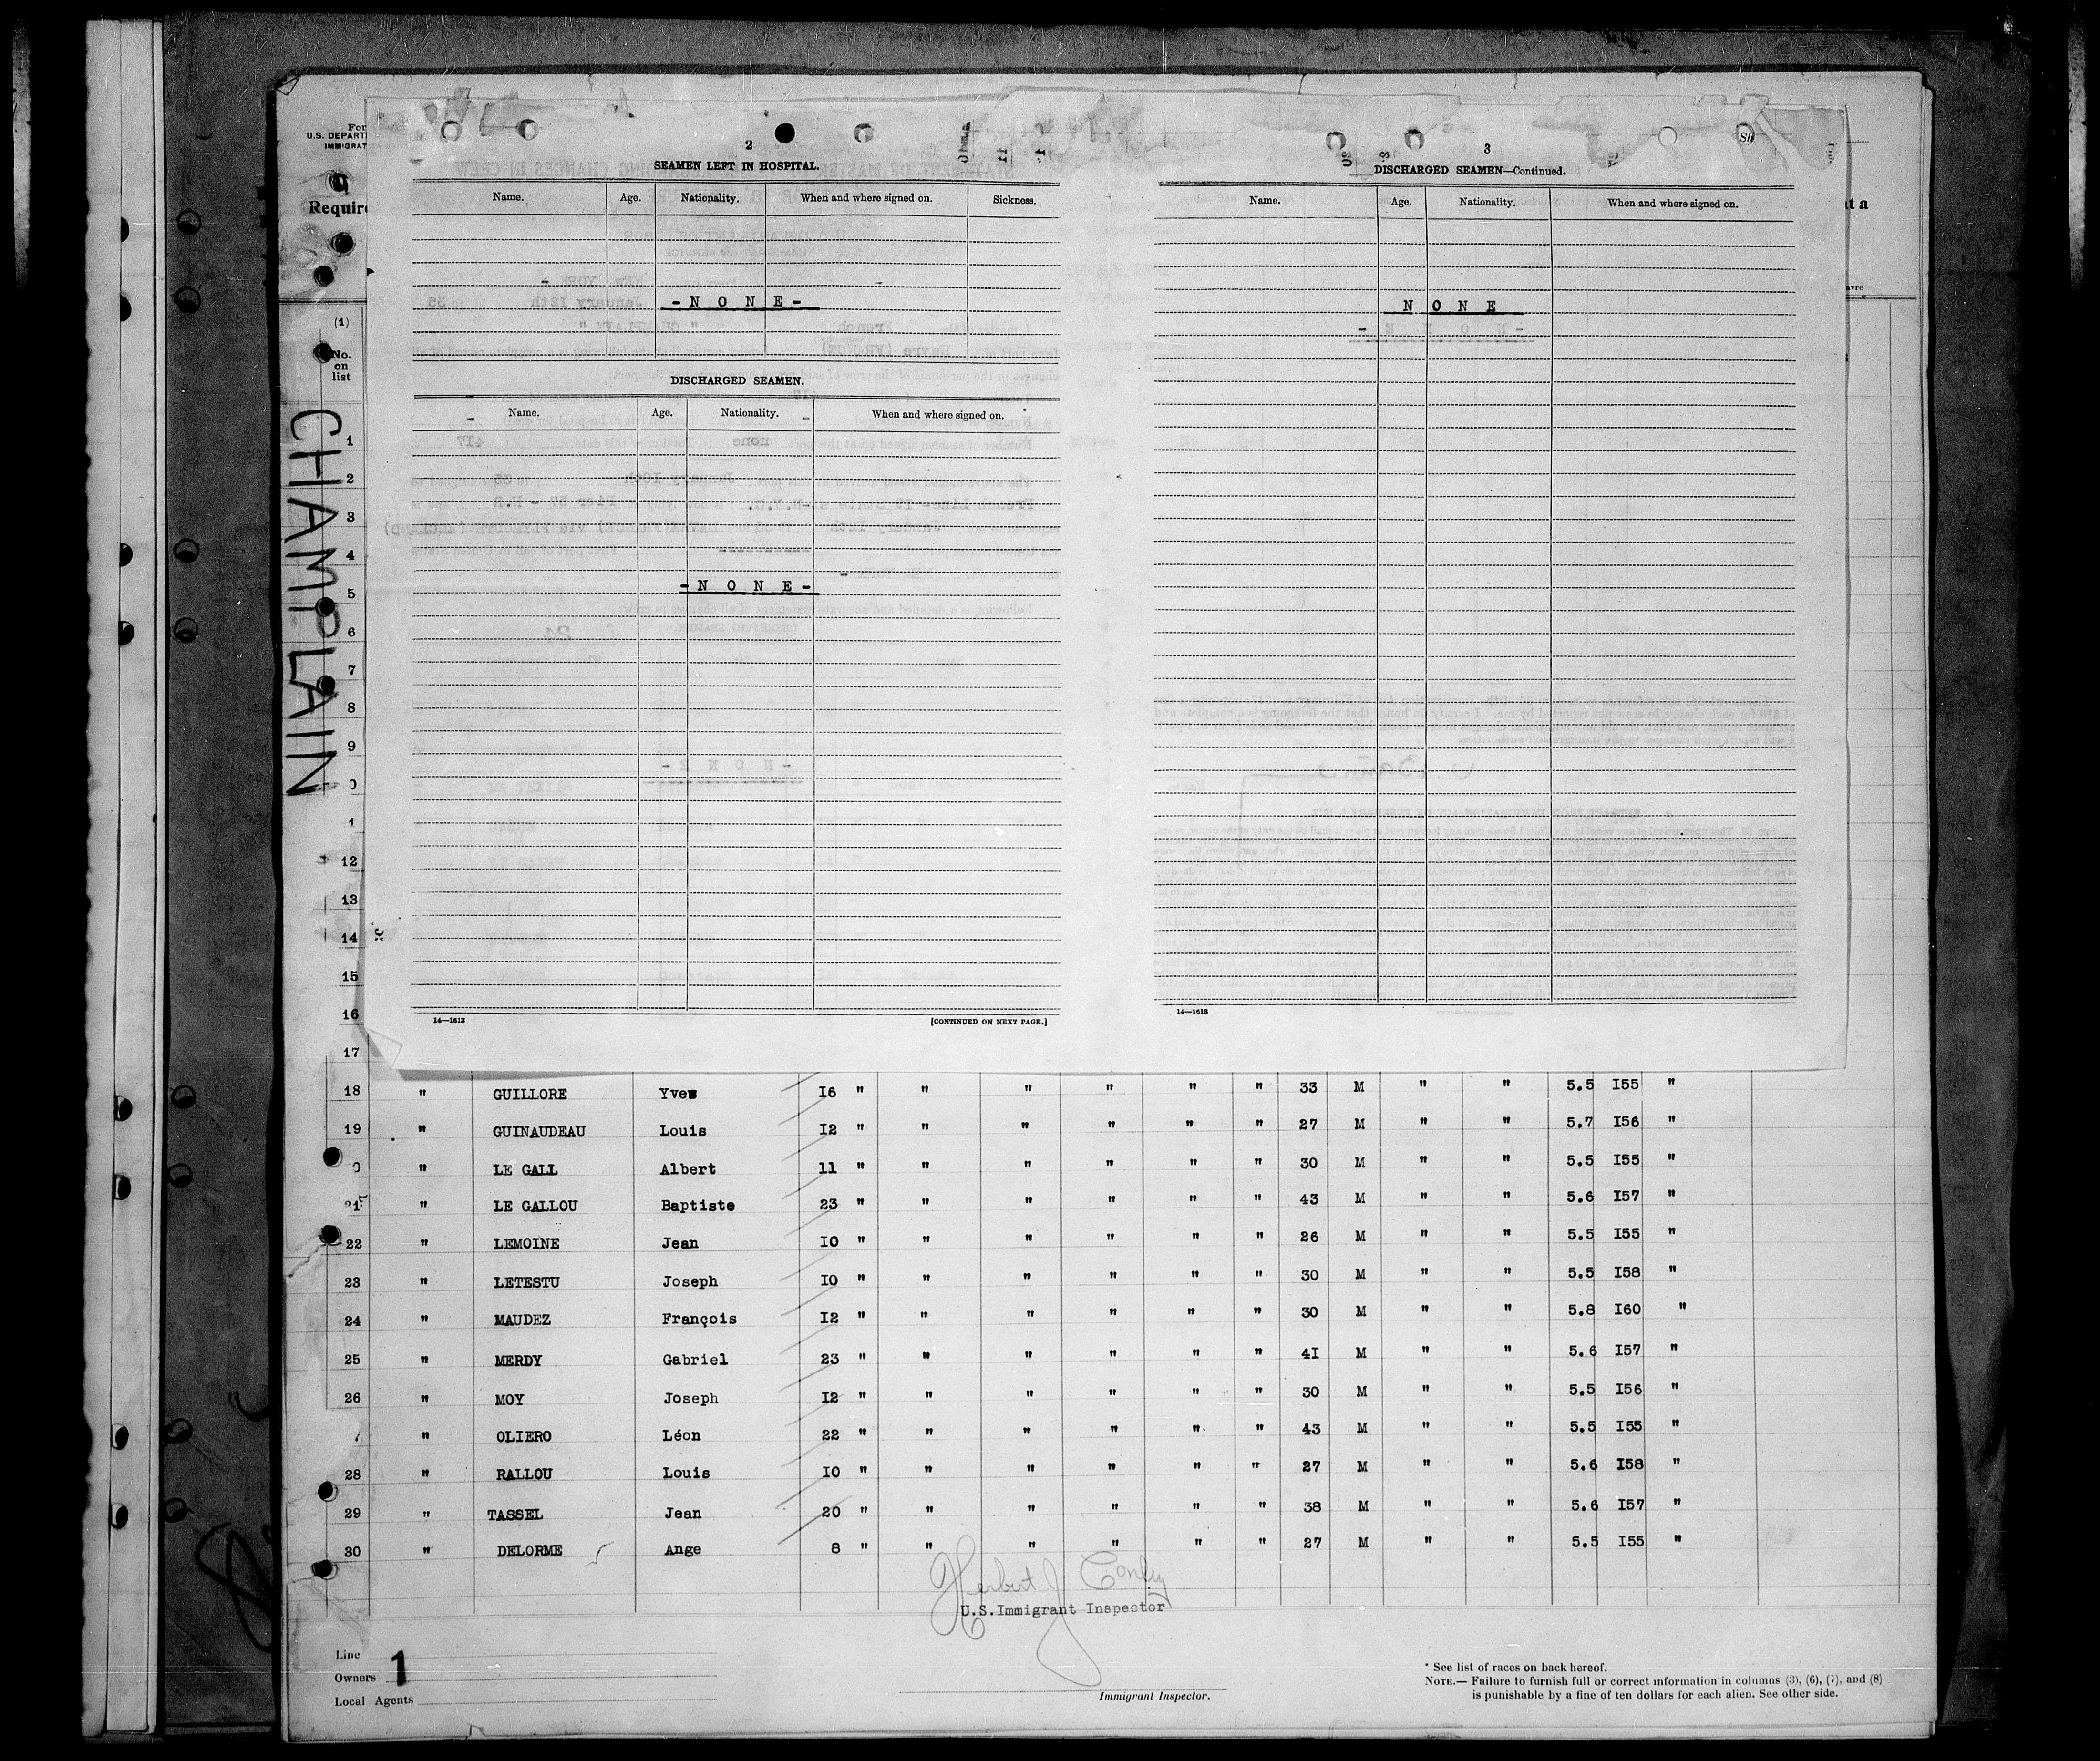 For
U.S. DEPART
IMMIGRAT
Require
(1)
No.
on
list
CHAMPLAIN
2
SEAMEN LEFT IN HOSPITAL.
Name. Age. Nationality. When and where signed on. Sickness.
-N O N E-
DISCHARGED SEAMEN.
Name. Age. Nationality. When and where signed on.
-N O N E-
14—1613 [CONTINUED ON NEXT PAGE.]
3
DISCHARGED SEAMEN—Continued.
Name. Age. Nationality. When and where signed on.
N O N E
14—1613
1
2
3
4
5
6
7
8
9
0
1
12
13
14
15
16
17
18 " GUILLORE Yves 16 " " " " " " 33 M " " 5.5 I55 "
19 " GUINAUDEAU Louis I2 " " " " " " 27 M " " 5.7 I56 "
0 " LE GALL Albert 11 " " " " " " 30 M " " 5.5 I55 "
21 " LE GALLOU Baptiste 23 " " " " " " 43 M " " 5.6 I57 "
22 " LEMOINE Jean IO " " " " " " 26 M " " 5.5 I55 "
23 " LETESTU Joseph IO " " " " " " 30 M " " 5.5 I58 "
24 " MAUDEZ François I2 " " " " " " 30 M " " 5.8 I60 "
25 " MERDY Gabriel 23 " " " " " " 4I M " " 5.6 I57 "
26 " MOY Joseph I2 " " " " " " 30 M " " 5.5 I56 "
7 " OLIERO Léon 22 " " " " " " 43 M " " 5.5 I55 "
28 " RALLOU Louis IO " " " " " " 27 M " " 5.6 I58 "
29 " TASSEL Jean 20 " " " " " " 38 M " " 5.6 I57 "
30 " DELORME Ange 8 " " " " " " 27 M " " 5.5 I55 "
Herbert J Conley
U.S.Immigrant Inspector
Line
Owners 1
Local Agents
Immigrant Inspector.
* See list of races on back hereof.
NOTE.— Failure to furnish full or correct information in columns (3), (6), (7), and (8)
is punishable by a fine of ten dollars for each alien. See other side.